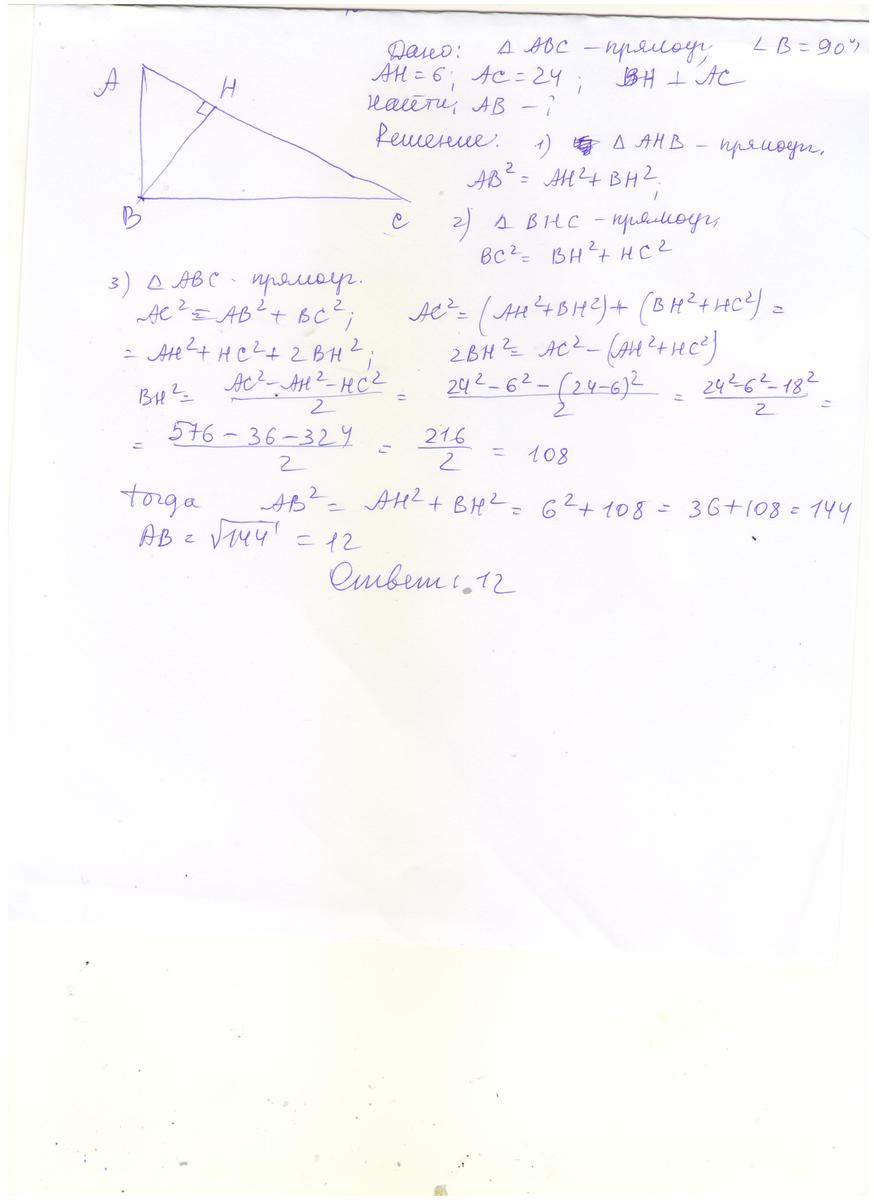 Дано: △ ABC – прямоуг; ∠B = 90°;
AH = 6; AC = 24; BH ⊥ AC
Найти; AB – ?
A
H
B
C
Решение: 1) △ AHB – прямоуг.
AB² = AH² + BH²;
2) △ BHC – прямоуг;
BC² = BH² + HC²
3) △ ABC - прямоуг.
AC² = AB² + BC²; AC² = (AH² + BH²) + (BH² + HC²) =
= AH² + HC² + 2BH²; 2BH² = AC² – (AH² + HC²)
BH² = (AC² – AH² – HC²)/2 = (24² – 6² – (24–6)²)/2 = (24² – 6² – 18²)/2 =
= (576 – 36 – 324)/2 = 216/2 = 108
Тогда AB² = AH² + BH² = 6² + 108 = 36 + 108 = 144
AB = √144 = 12
Ответ: 12